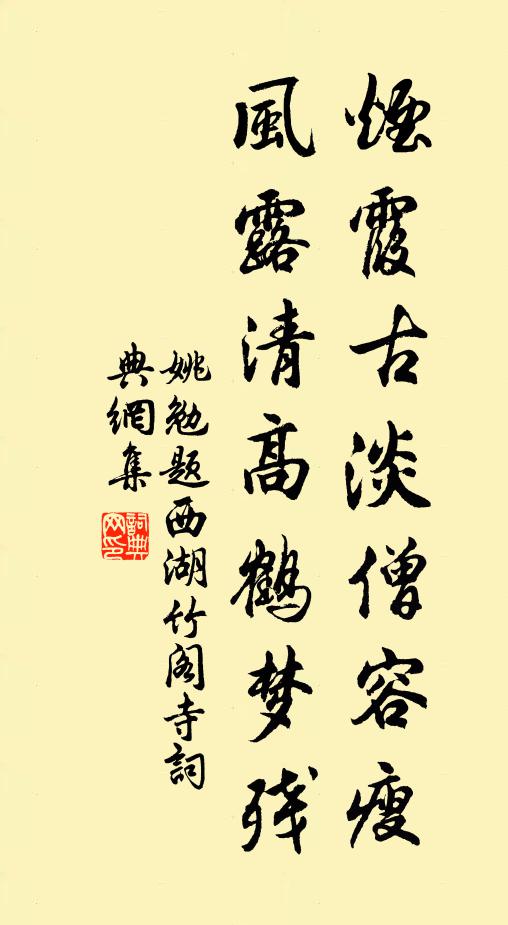 煙霞古淡僧容瘦
風露清高鶴梦残
姚勉题西湖竹阁寺詞
典網集
詞典
网印